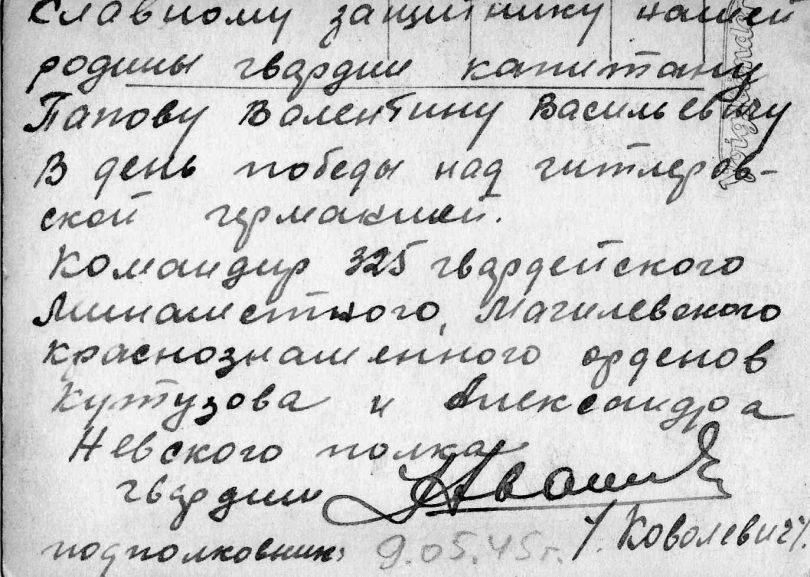 Славному защитнику нашей
родины гвардии капитану
Папову Валентину Васильевичу
В день победы над гитлеров-
ской германией.
Командир 325 гвардейского
Минаметного, Магилевского
краснознаменного орденов
Кутузова и Александра
Невского полка
гвардии
подполковник: 9.05.45г. /. Коволевич/.